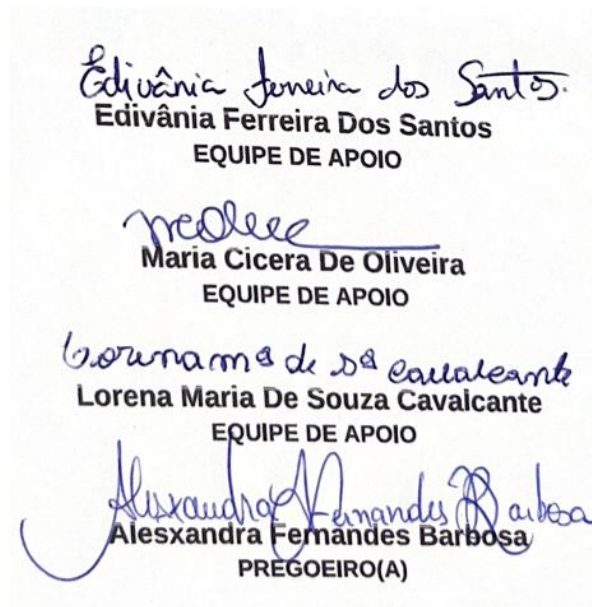 Edivânia Ferreira dos Santos.
Edivânia Ferreira Dos Santos
EQUIPE DE APOIO
Maria Cicera De Oliveira
EQUIPE DE APOIO
Lorena Mª de Sª Cavalcante
Lorena Maria De Souza Cavalcante
EQUIPE DE APOIO
Alesxandra Fernandes Barbosa
Alesxandra Fernandes Barbosa
PREGOEIRO(A)